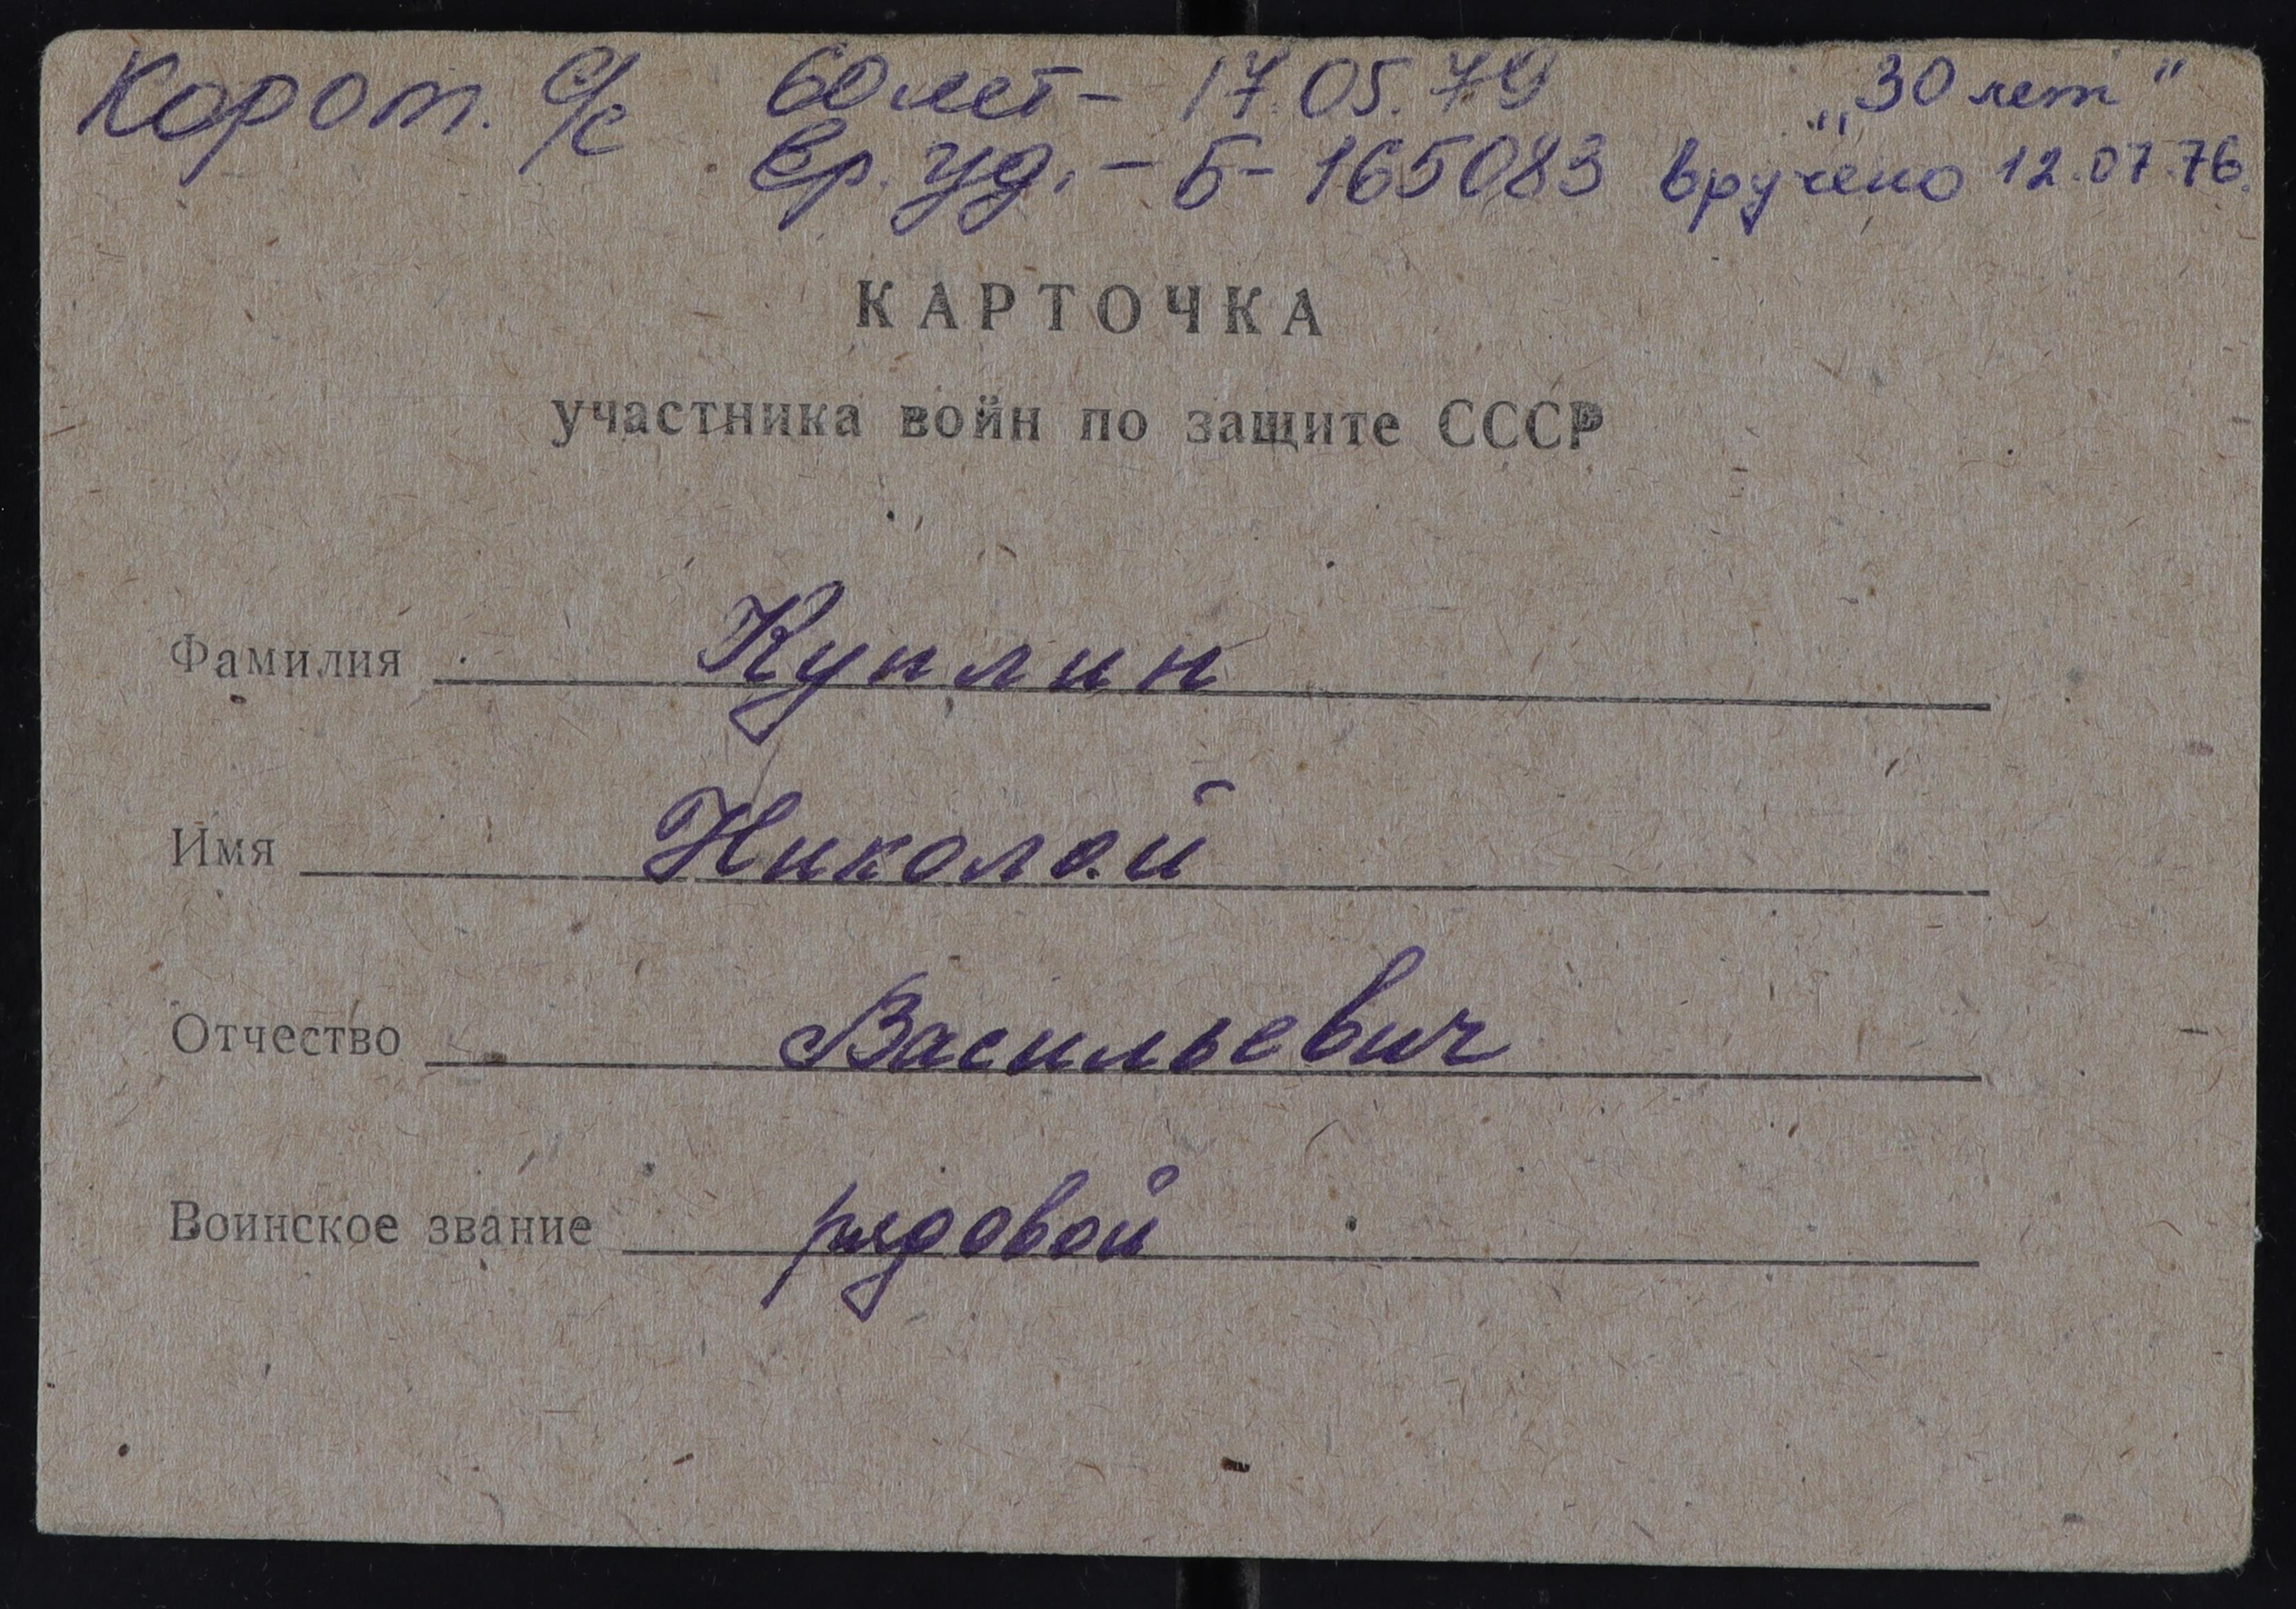 Корот. с/с 60 лет - 17.05.79 „30 лет"
вр. уд. - Б - 165083 вручено 12.07.76.
КАРТОЧКА
участника войн по защите СССР
Фамилия Куплин
Имя Николай
Отчество Васильевич
Воинское звание рядовой